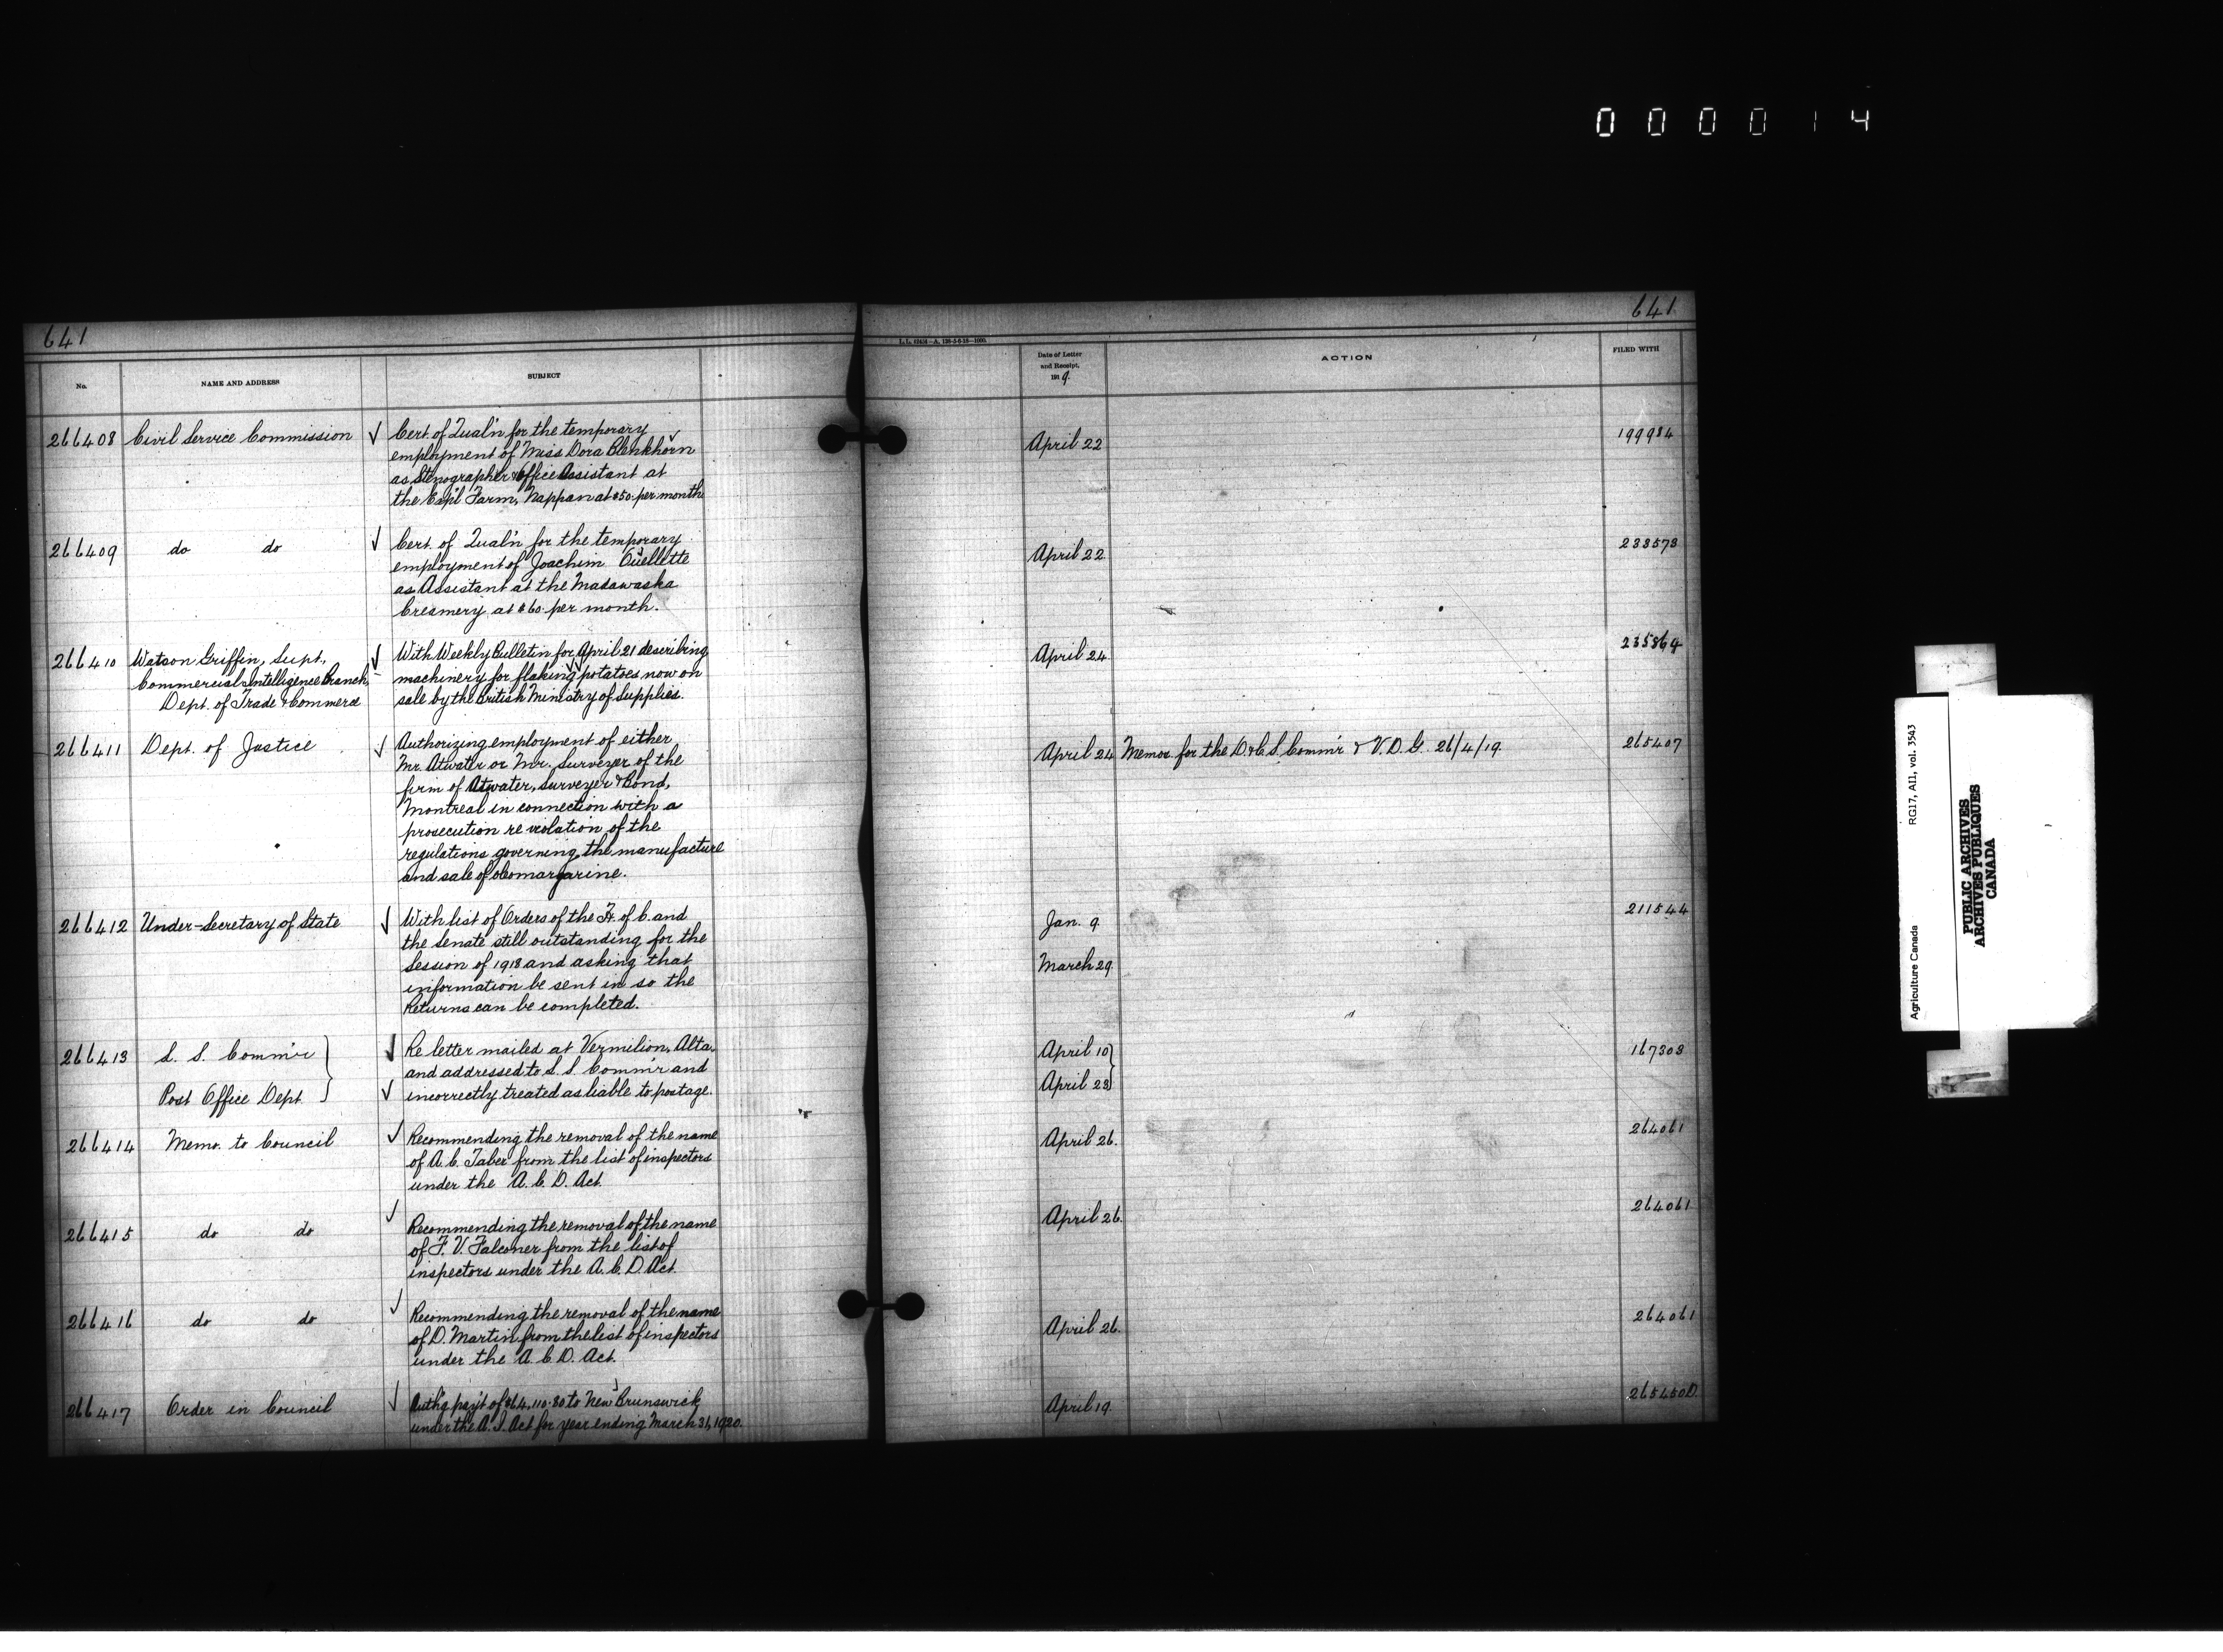 000014
641
No.
NAME AND ADDRESS
SUBJECT
266408 Civil Service Commission √ Cert. of Qual'n for the temporary
employment of Miss Dora Blenkhorn
as Stenographer & Office Assistant at
the Exp'l Farm, Nappan at $50. per month
266409 do do √ Cert. of Qual'n for the temporary
employment of Joachim Ouellette
as Assistant at the Madawaska
Creamery at $60 per month.
266410 Watson Griffin, Supt., √ With Weekly Bulletin for April 21 describing
Commercial Intelligence Branch, machinery for flaking potatoes now on
Dept. of Trade & Commerce sale by the British Ministry of Supplies.
266411 Dept. of Justice √ Authorizing employment of either
Mr. Atwater or Mr. Surveyer of the
firm of Atwater, Surveyer & Bond,
Montreal in connection with a
prosecution re violation of the
regulations governing the manufacture
and sale of oleomargarine.
266412 Under-Secretary of State √ With list of Orders of the H. of C. and
the Senate still outstanding for the
Session of 1918 and asking that
information be sent in so the
Returns can be completed.
266413 S. S. Comm'r √ Re letter mailed at Vermilion, Alta.
and addressed to S. S. Comm'r and
Post Office Dept. √ incorrectly treated as liable to postage.
266414 Memo. to Council √ Recommending the removal of the name
of A. C. Taber from the list of inspectors
under the A. C. D. Act.
266415 do do √ Recommending the removal of the name
of F. V. Falconer from the list of
inspectors under the A. C. D. Act.
266416 do do √ Recommending the removal of the name
of D. Martin from the list of inspectors
under the A. C. D. Act.
266417 Order in Council √ Auth'g pay't of $64,110.80 to New Brunswick
under the A. I. Act for year ending March 31, 1920.
641
Date of Letter
and Receipt,
1919.
ACTION
FILED WITH
April 22 199984
April 22 233573
April 24 235864
April 24 Memor. for the D. & C. S. Comm'r & V. D. G. 26/4/19. 265407
Jan. 9. 211544
March 29.
April 10 167303
April 23
April 26. 264061
April 26. 264061
April 26. 264061
April 19. 265450D.
Agriculture Canada RG17, AII1, vol. 3543
PUBLIC ARCHIVES
ARCHIVES PUBLIQUES
CANADA